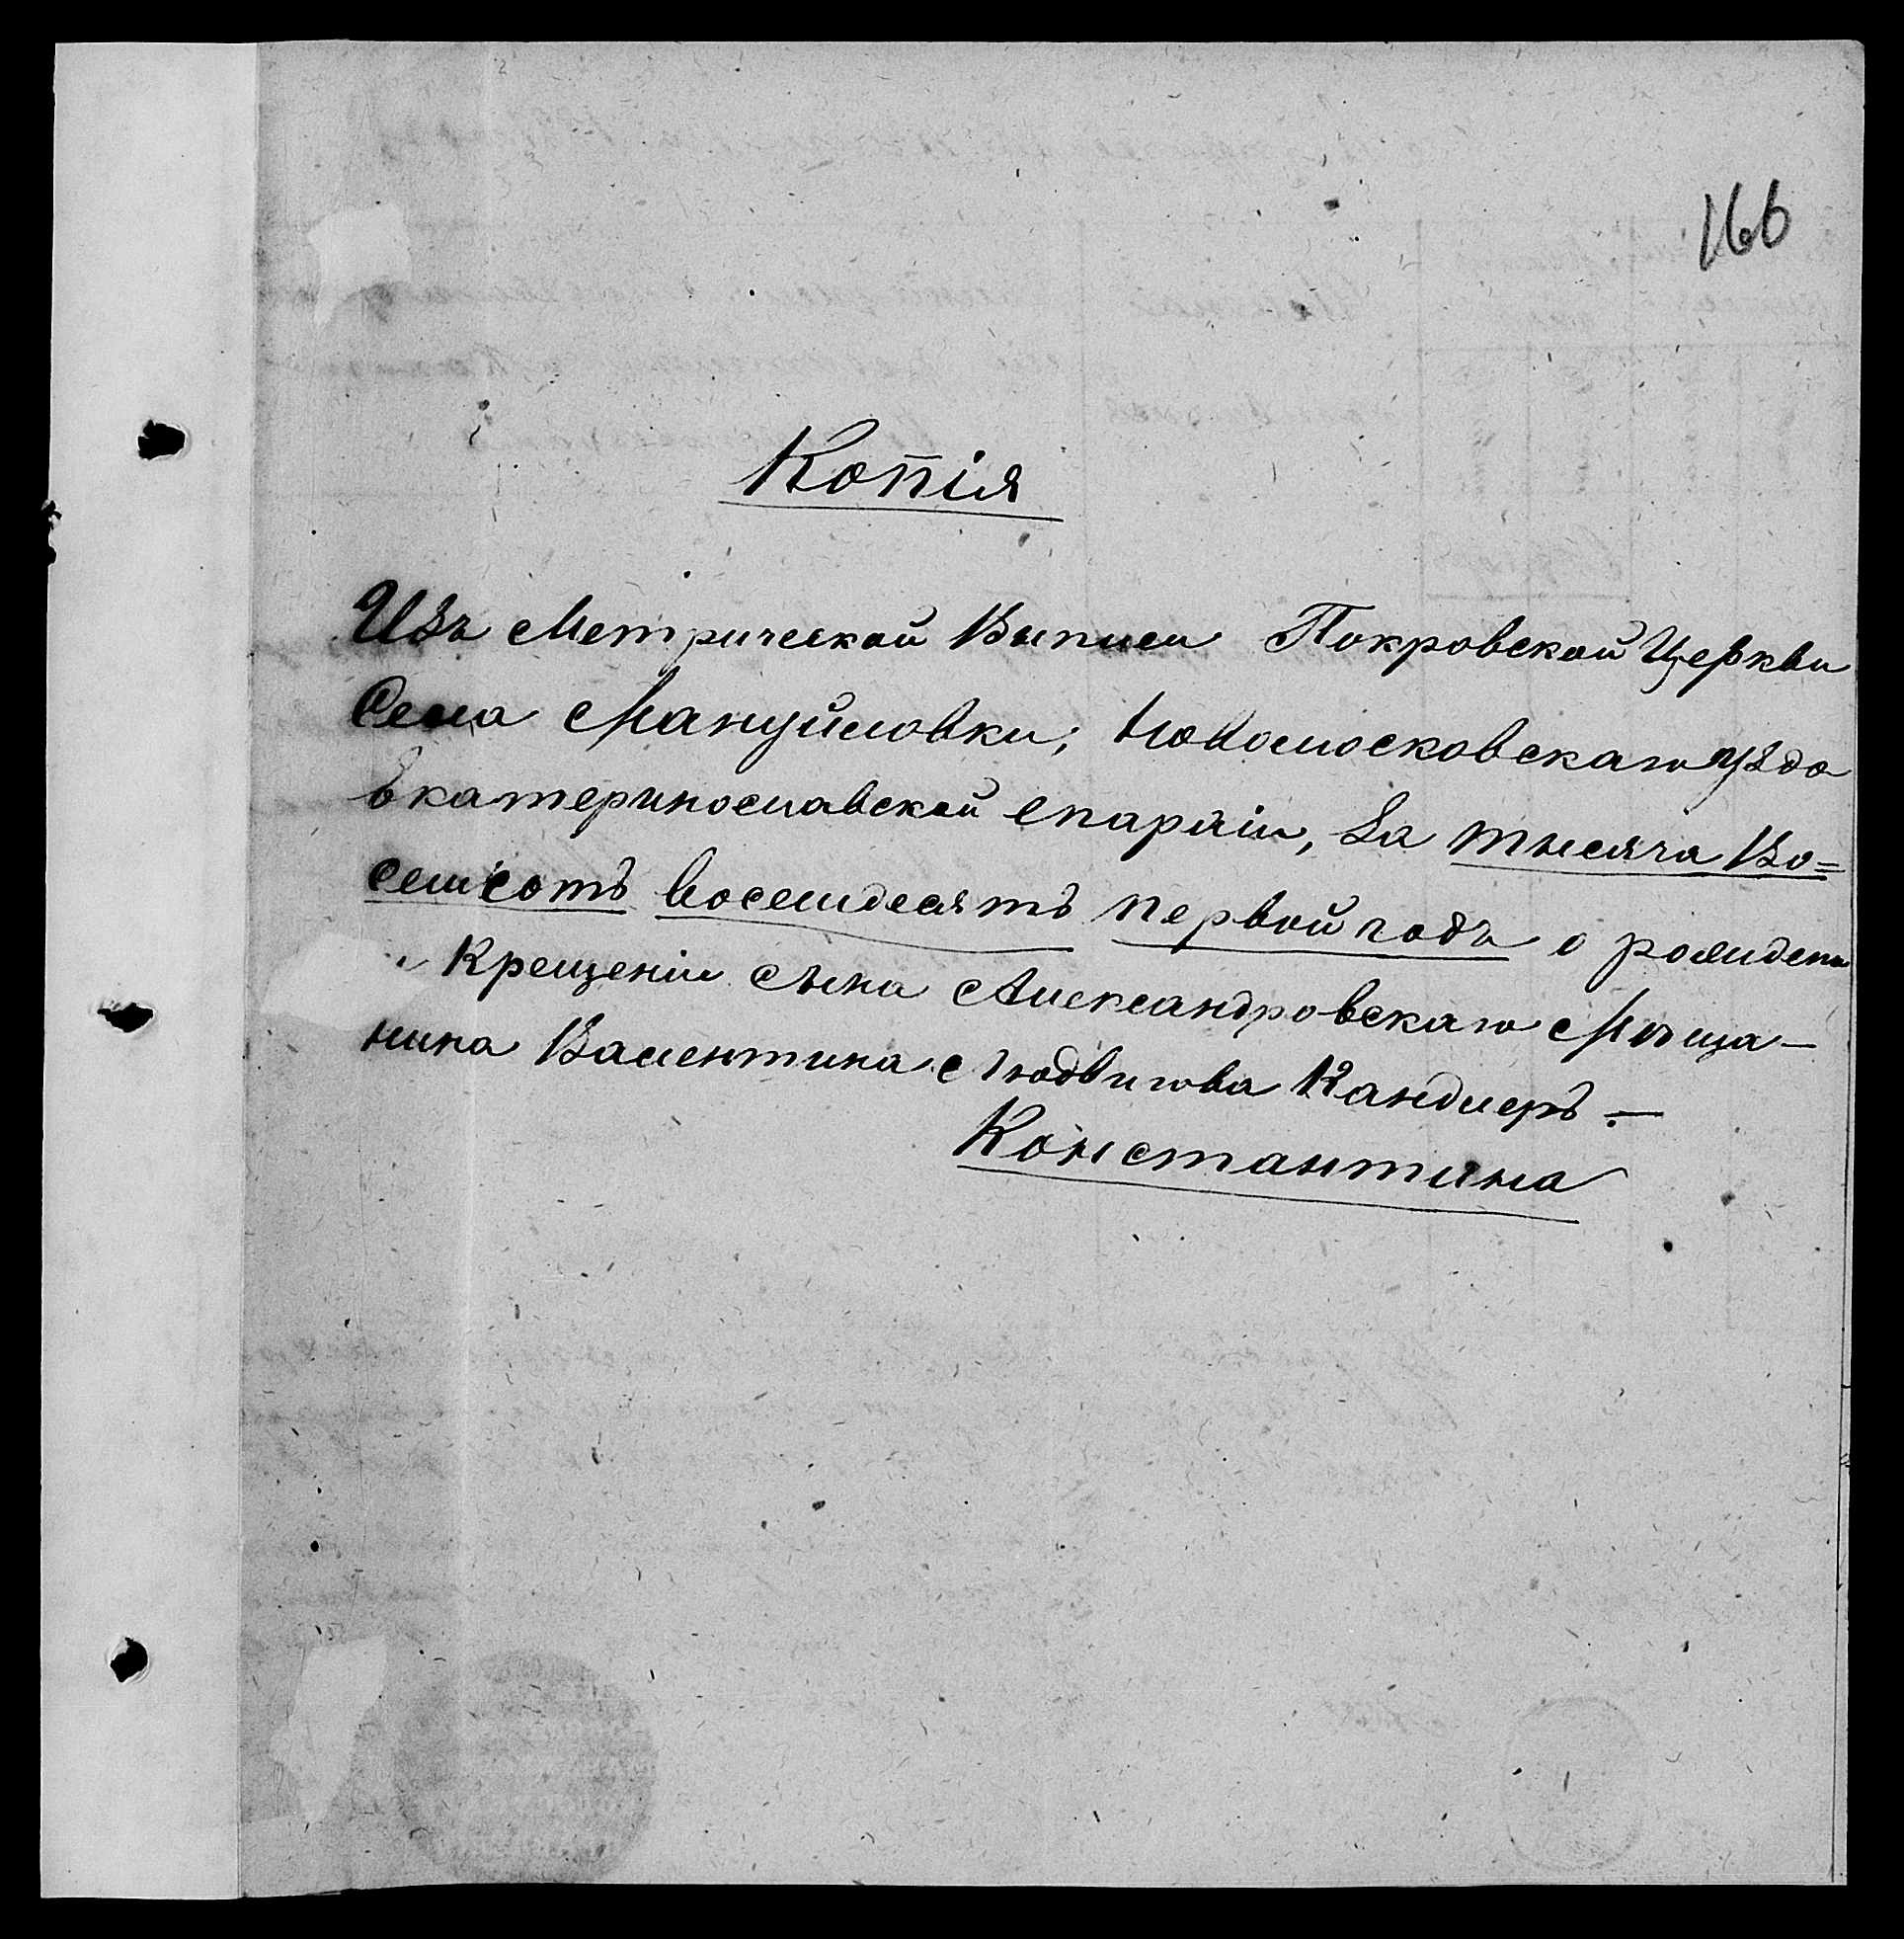 166
Копія
Изъ Метрической Выписи Покровской Церкви
Села Мануйловки, Новомосковскаго уѣзда
Екатеринославской епархіи, за тысяча во=
семсотъ восемдесятъ первой годъ о рожденіи
и Крещеніи сына Александровскаго Мѣща-
нина Валентина Людвигова Кандлеръ. —
Константина